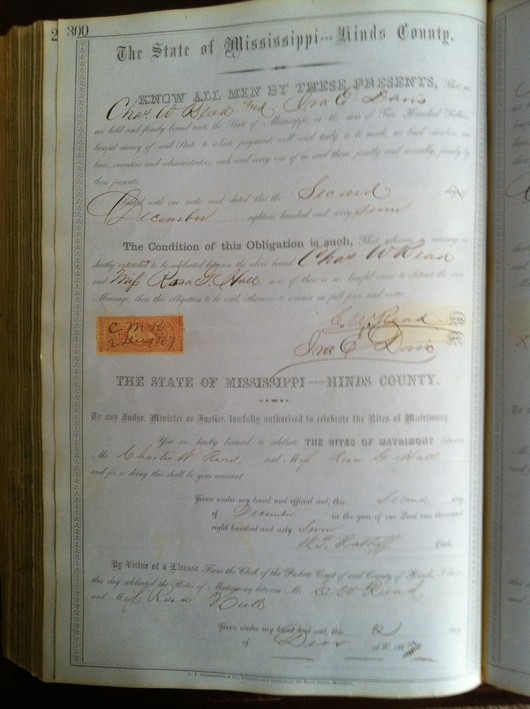 2 300
The State of Mississippi---Hinds County,
KNOW ALL MEN BY THESE PRESENTS, That we
Chas W Read and Ira E Davis
are held and firmly bound unto the State of Mississippi, in the sum of Five Hundred Dollars,
lawful money of said State to which payment, well and truly to be made we bind ourselves, our
heirs, executors and administrators, each and every one of us and them, jointly and severally, firmly by
these presents.
Sealed with our seals, and dated this the Second day of
December eighteen hundred and sixty seven
The Condition of this Obligation is such, That whereas a marriage is
shortly intended to be celebrated between the above bound Chas W Read
and Miss Rosa G. Hall now if there is no lawful cause to obstruct the said
Marriage, then this obligation to be void, otherwise to remain in full force and virtue.
C. W. Read
Ira E Davis
C M R
2 1867
THE STATE OF MISSISSIPPI---HINDS COUNTY.
To any Judge, Minister or Justice, lawfully authorised to celebrate the Rites of Matrimony:
You are hereby licensed to celebrate THE RITES OF MATRIMONY between
Mr Charles W Read and Miss Rosa G Hall
and for so doing this shall be your warrant.
Given under my hand and official seal, this Second day
of December in the year of our Lord one thousand
eight hundred and sixty Seven
W. T. Ratliff Clerk.
By Virtue of a License From the Clerk of the Probate Court of said County of Hinds, I have
this day celebrated the Rites of Matrimony between Mr. C W Read
and Miss Rosa Hall
Given under my hand and seal, this 2 day
of Decr A.D. 1867